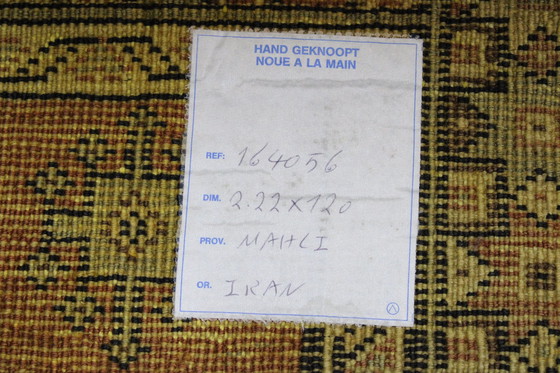 HAND GEKNOOPT
NOUE A LA MAIN
REF: 164056
DIM. 2.22 x 120
PROV. MAHLI
OR. IRAN